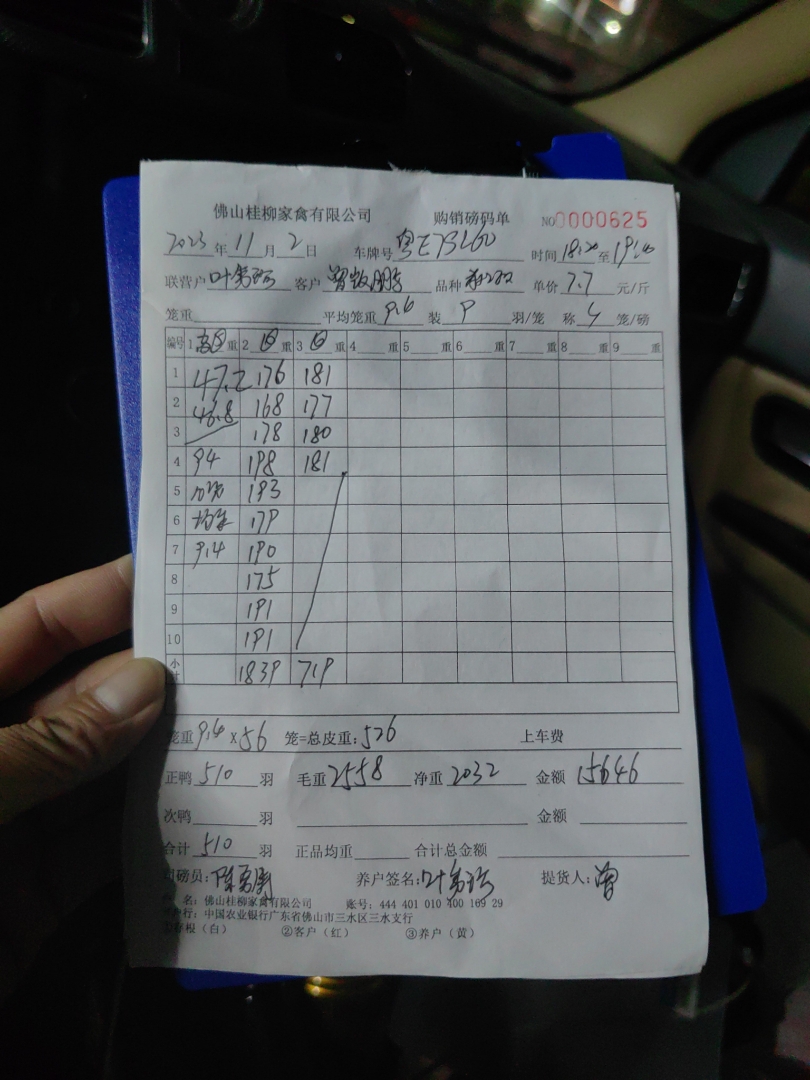 佛山桂柳家禽有限公司 购销磅码单 NO 0000625
2023年11月2日 车牌号 时间 至
联营户 客户 品种 单价 7.7 元/斤
笼重 平均笼重 9.4 装 9 羽/笼 称 4 笼/磅
编号 1 重 2 重 3 重 4 重 5 重 6 重 7 重 8 重 9 重
1 47.2 176 181
2 46.8 168 177
3 178 180
4 94 198 181
5 193
6 179
7 9.4 190
8 175
9 191
10 191
小计 1839 719
笼重 9.4 × 56 笼=总皮重: 526 上车费
正鸭 510 羽 毛重 2558 净重 2032 金额 15646
次鸭 羽 金额
合计 510 羽 正品均重 合计总金额
司磅员: 养户签名: 提货人: 曾
名: 佛山桂柳家禽有限公司 账号: 444 401 010 400 169 29
户行: 中国农业银行广东省佛山市三水区三水支行
①存根(白) ②客户(红) ③养户(黄)